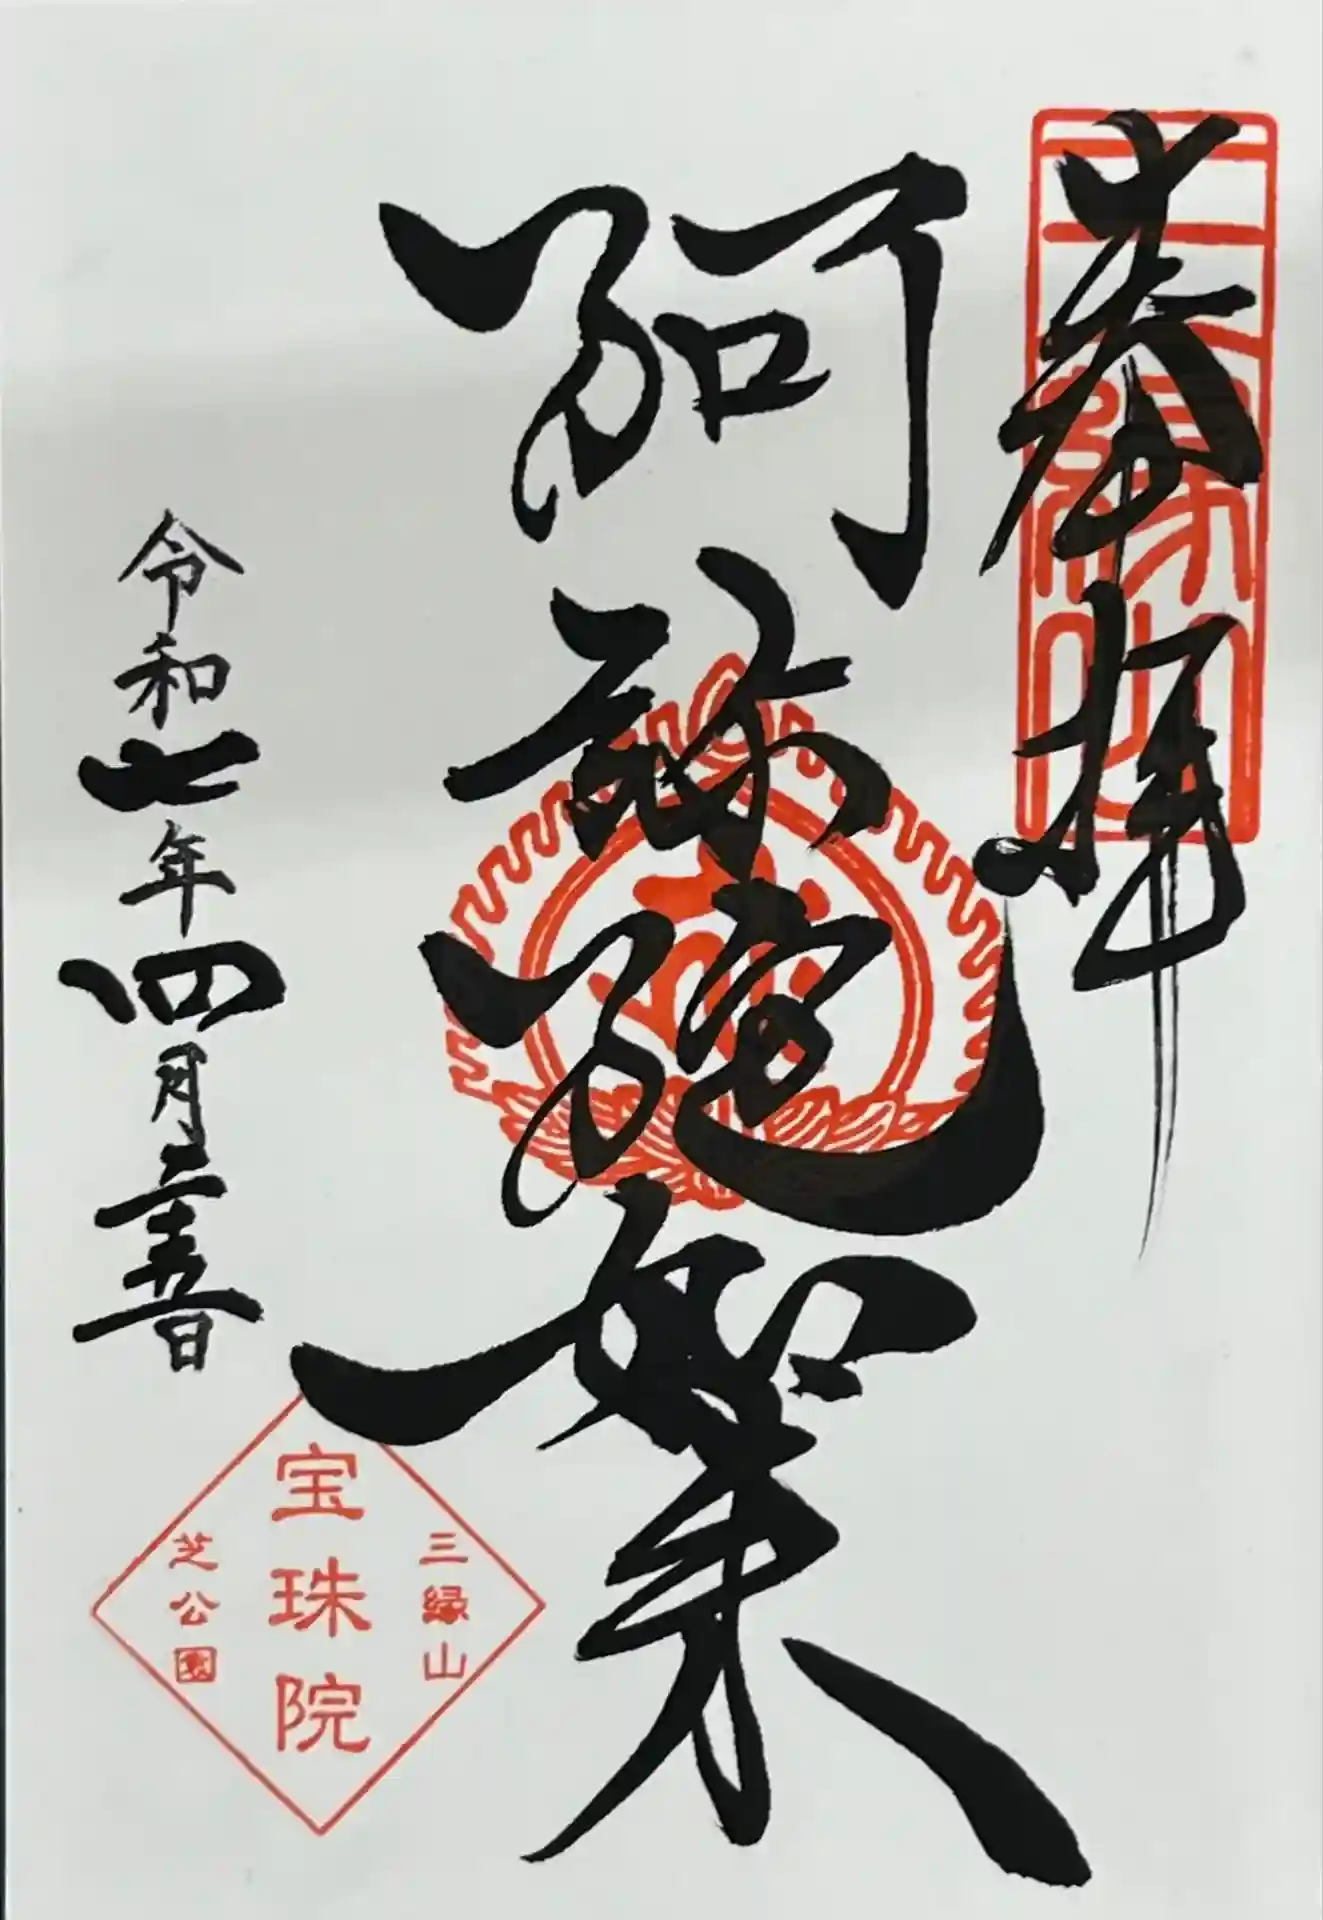 奉拝
三縁山
阿弥陀如来
令和七年四月二十五日
三縁山
宝珠院
芝公園